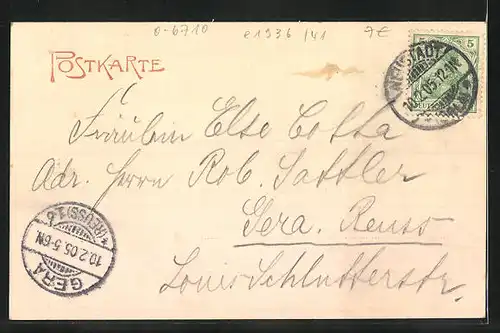 0-6710 e1936/41 7€
POSTKARTE
5
NEUSTADT
10.2.05.12-1N.
Fräulein Else Cotta
Adr. Herrn Rob. Sattler
Gera. Reuss
Louis Schlutterstr.
*(REUSS)1.b
10.2.05.5-6N.
GERA